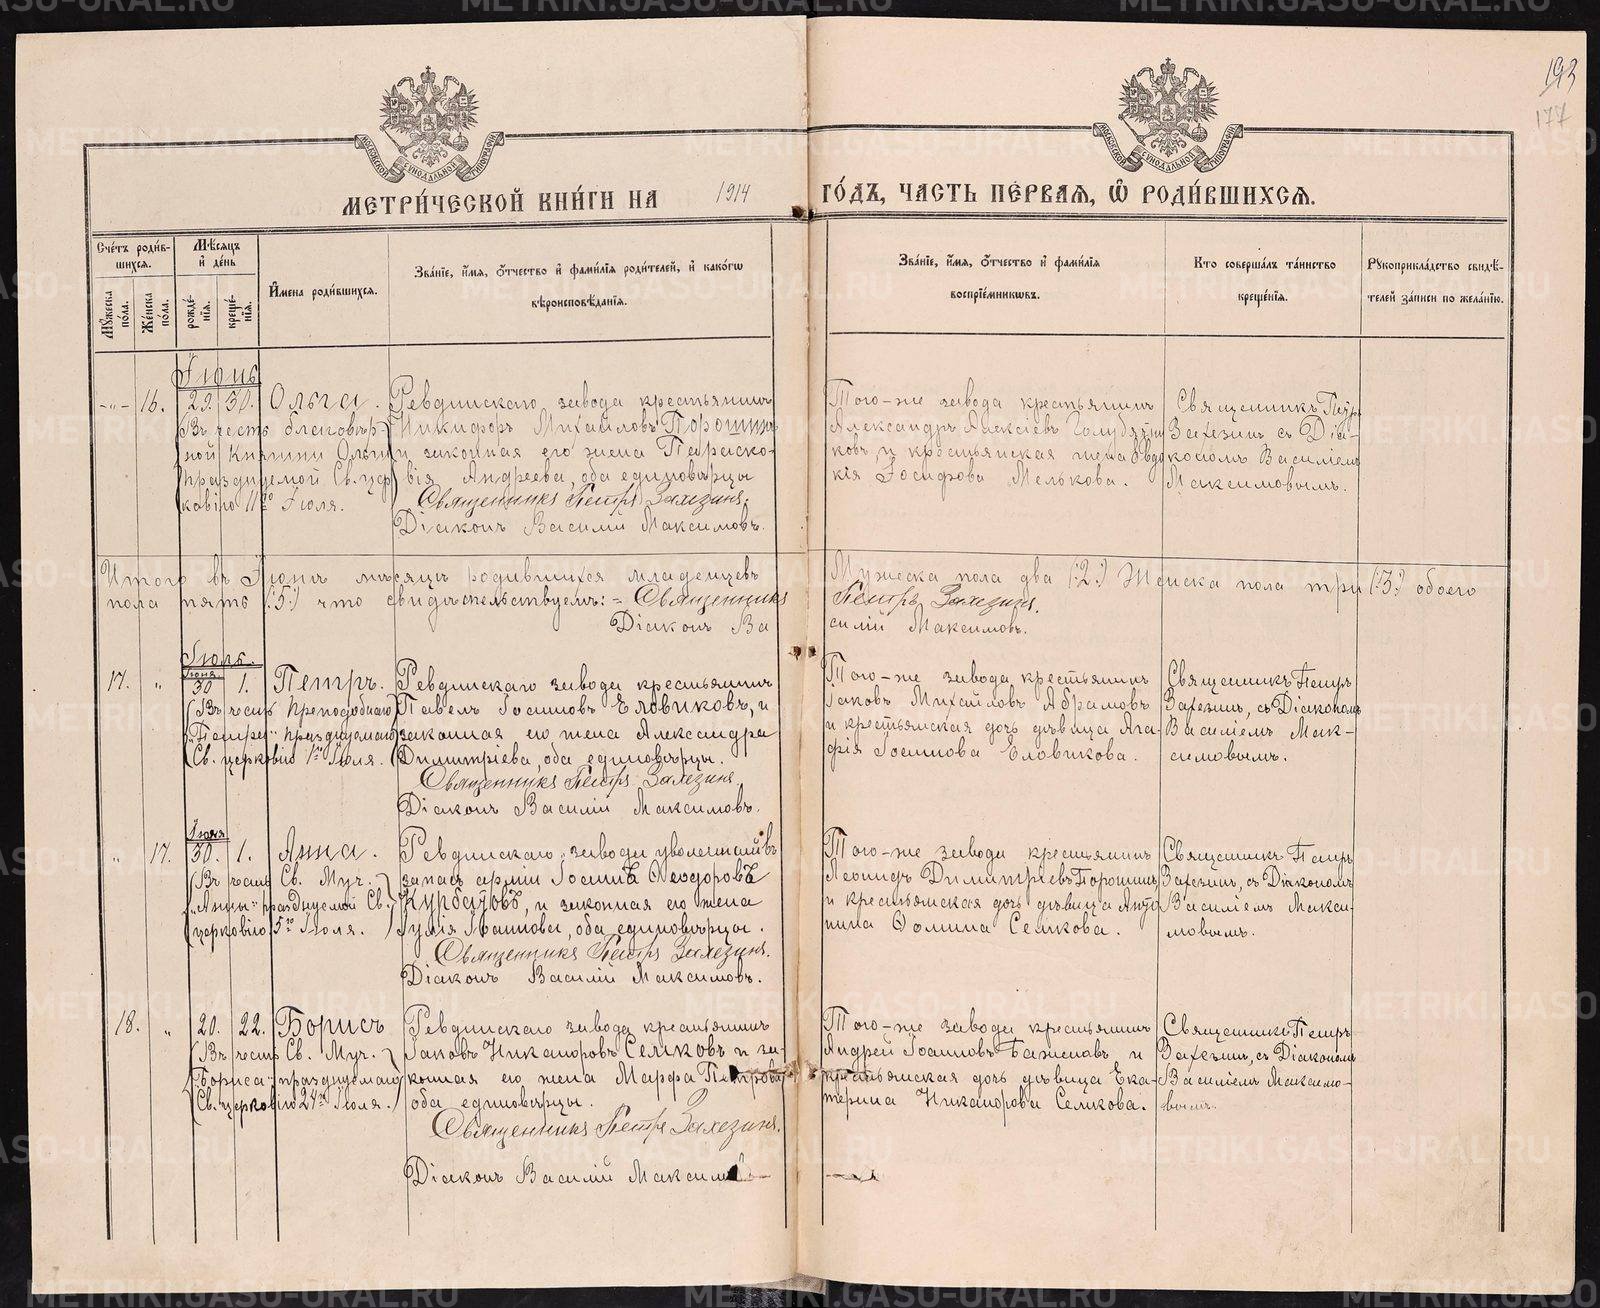 193
177
МЕТРИ́ЧЕСКОЙ КНИ́ГИ НА 1914 ГО́ДЪ, ЧАСТЬ ПЕ́РВАЯ, Ѡ РОДИ́ВШИХСЯ.
Сче́тъ роди́вшихся.
Мꙋ́жеска по́ла.
Же́нска по́ла.
Мѣ́сяцъ и́ де́нь
рожде́нїя.
креще́нїя.
И҆мена роди́вшихся.
Зва́нїе, и҆́мя, ѻ҆́тчество и҆ фами́лїя роди́телей, и҆ како́гѡ
вѣроисповѣ́данїя.
Зва́нїе, и҆́мя, ѻ҆́тчество и҆ фами́лїя
воспрїе́мникѡвъ.
Кто соверша́лъ та́инство
креще́нїя.
Рꙋкоприкла́дство свидѣ́-
телей за́писи по жела́нїю.
Іюнь
-"- 16. 29. 30. Ольга.
Въ честь благовѣр-
ной Княгини Ольги
празднуемой Св. цер
ковію 11го Іюля.
Ревдинскаго завода крестьянинъ
Никифоръ Михайловъ Порошинъ
и законная его жена Параско-
вія Андреева, оба единовѣрцы
Священникъ Петръ Захезинъ.
Діаконъ Василій Максимовъ.
Того-же завода крестьянинъ
Александръ Алексіевъ
ковъ, и крестьянская жена
кія Іосифова Мелькова.
Священникъ Петръ
Захезинъ съ Діа-
кономъ Василіемъ
Максимовымъ.
Итого въ Іюнѣ мѣсяцѣ родившихся младенцевъ Мужеска пола два (:2:) Женска пола три (:3:) обоего
пола пять (:5:) что свидѣтельствуемъ: = Священникъ Петръ Захезинъ.
Діаконъ Василій Максимовъ.
Іюль.
17. " Іюня 30 1. Петръ.
(Въ честь Преподобнаго
"Петра" празднуемаго
Св. церковію 1го Іюля.
Ревдинскаго завода крестьянинъ
Павелъ Іоанновъ Еловиковъ, и
законная его жена Александра
Димитріева, оба единовѣрцы.
Священникъ Петръ Захезинъ.
Діаконъ Василій Максимовъ.
Того-же завода крестьянинъ
Іаковъ Михайловъ Абрамовъ
и крестьянская дочь дѣвица Ага-
фія Іоаннова Еловикова.
Священникъ Петръ
Захезинъ, съ Діакономъ
Василіемъ Мак-
симовымъ.
" 17. Іюня 30. 1. Анна.
(Въ честь Св. Муч.
"Анны" празднуемой Св.
церковію 5го Іюля.)
Ревдинскаго завода уволенный въ
запасъ арміи Іоаннъ Ѳеодоровъ
Курбатовъ, и законная его жена
Іулія Іоаннова, оба единовѣрцы.
Священникъ Петръ Захезинъ.
Діаконъ Василій Максимовъ.
Того-же завода крестьянинъ
Леонидъ Димитріевъ Порошинъ
и крестьянская дочь дѣвица Анто
нина Ѳомина Семкова.
Священникъ Петръ
Захезинъ, съ Діакономъ
Василіемъ Макси-
мовымъ.
18. " 20. 22. Борисъ
(Въ честь Св. Муч.
"Бориса" празднуемаго
Св. церковію 24го Іюля.)
Ревдинскаго завода крестьянинъ
Іаковъ Никаноровъ Семковъ и за-
конная его жена Марфа Петрова
оба единовѣрцы.
Священникъ Петръ Захезинъ.
Діаконъ Василій Максимовъ
Того-же завода крестьянинъ
Андрей Іоанновъ Баженовъ и
крестьянская дочь дѣвица Ека-
терина Никанорова Семкова.
Священникъ Петръ
Захезинъ, съ Діакономъ
Василіемъ Максимо-
вымъ.
METRIKI.GASO-URAL.RU